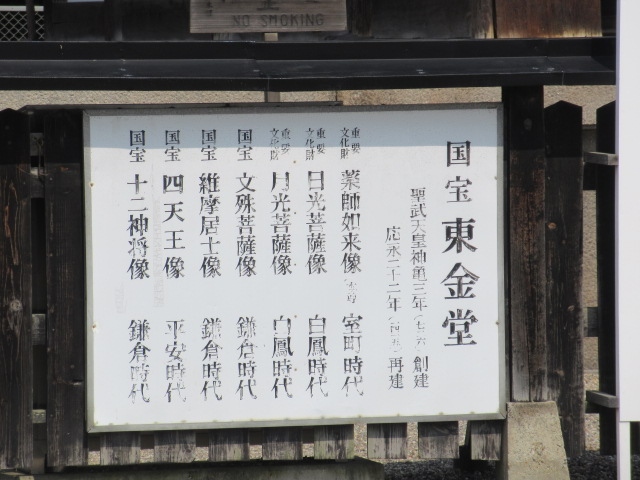 NO SMOKING
国宝 東金堂
聖武天皇神亀三年(七二六)創建
応永二十二年(一四一五)再建
重要文化財 薬師如来像(本尊) 室町時代
重要文化財 日光菩薩像 白鳳時代
重要文化財 月光菩薩像 白鳳時代
国宝 文殊菩薩像 鎌倉時代
国宝 維摩居士像 鎌倉時代
国宝 四天王像 平安時代
国宝 十二神将像 鎌倉時代